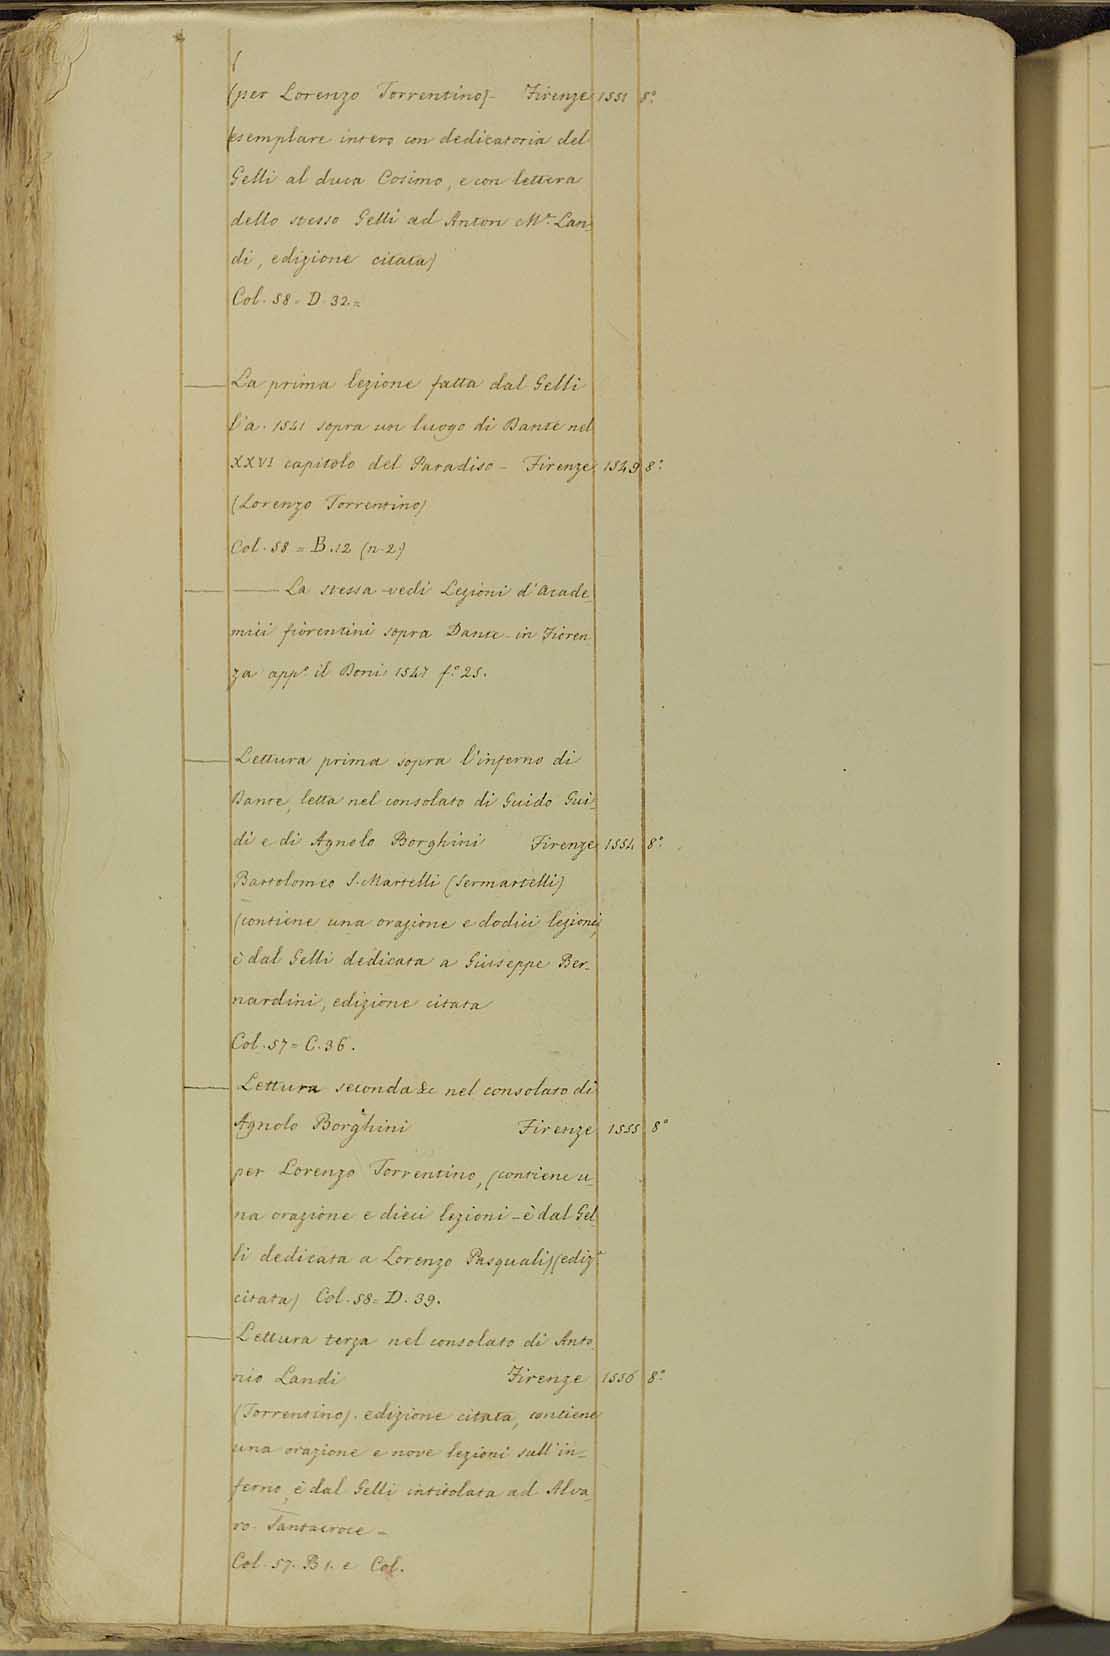 (per Lorenzo Torrentino) - Firenze 1551 8°
(esemplare intero con dedicatoria del
Gelli al duca Cosimo, e con lettera
dello stesso Gelli ad Anton Mª Lan-
di, edizione citata)
Col. 58 = D. 32. =
La prima lezione fatta dal Gelli
l'a. 1541 sopra un luogo di Dante nel
XXVI capitolo del Paradiso - Firenze 1549 8°
(Lorenzo Torrentino)
Col. 58 = B. 12 (n. 2.)
— La stessa vedi Lezioni d'Acade-
mici fiorentini sopra Dante - in Fioren-
za appº il Doni 1547 fº 25.
Lettura prima sopra l'inferno di
Dante, letta nel consolato di Guido Gui-
di e di Agnolo Borghini Firenze 1554 8°
Bartolomeo S. Martelli (Sermartelli)
(contiene una orazione e dodici lezioni,
è dal Gelli dedicata a Giuseppe Ber-
nardini, edizione citata
Col. 57 = C. 36.
Lettura seconda &c nel consolato di
Agnolo Borghini Firenze 1555 8°
per Lorenzo Torrentino, (contiene u-
na orazione e dieci lezioni - è dal Gel-
li dedicata a Lorenzo Pasquali) (edizª
citata) Col. 58 = D. 39.
Lettura terza nel consolato di Anto
nio Landi Firenze 1556 8°
(Torrentino). edizione citata, contiene
una orazione e nove lezioni sull'in-
ferno, è dal Gelli intitolata ad Alva-
ro Santacroce -
Col. 57. B 1. e Col.